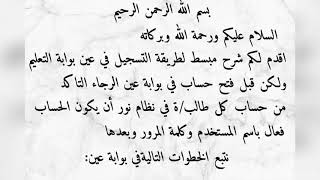 بسم الله الرحمن الرحيم
السلام عليكم ورحمة الله وبركاته
اقدم لكم شرح مبسط لطريقة التسجيل في عين بوابة التعليم
ولكن قبل فتح حساب في بوابة عين الرجاء التاكد
من حساب كل طالب/ة في نظام نور أن يكون الحساب
فعال باسم المستخدم وكلمة المرور وبعدها
نتبع الخطوات التاليةفي بوابة عين: